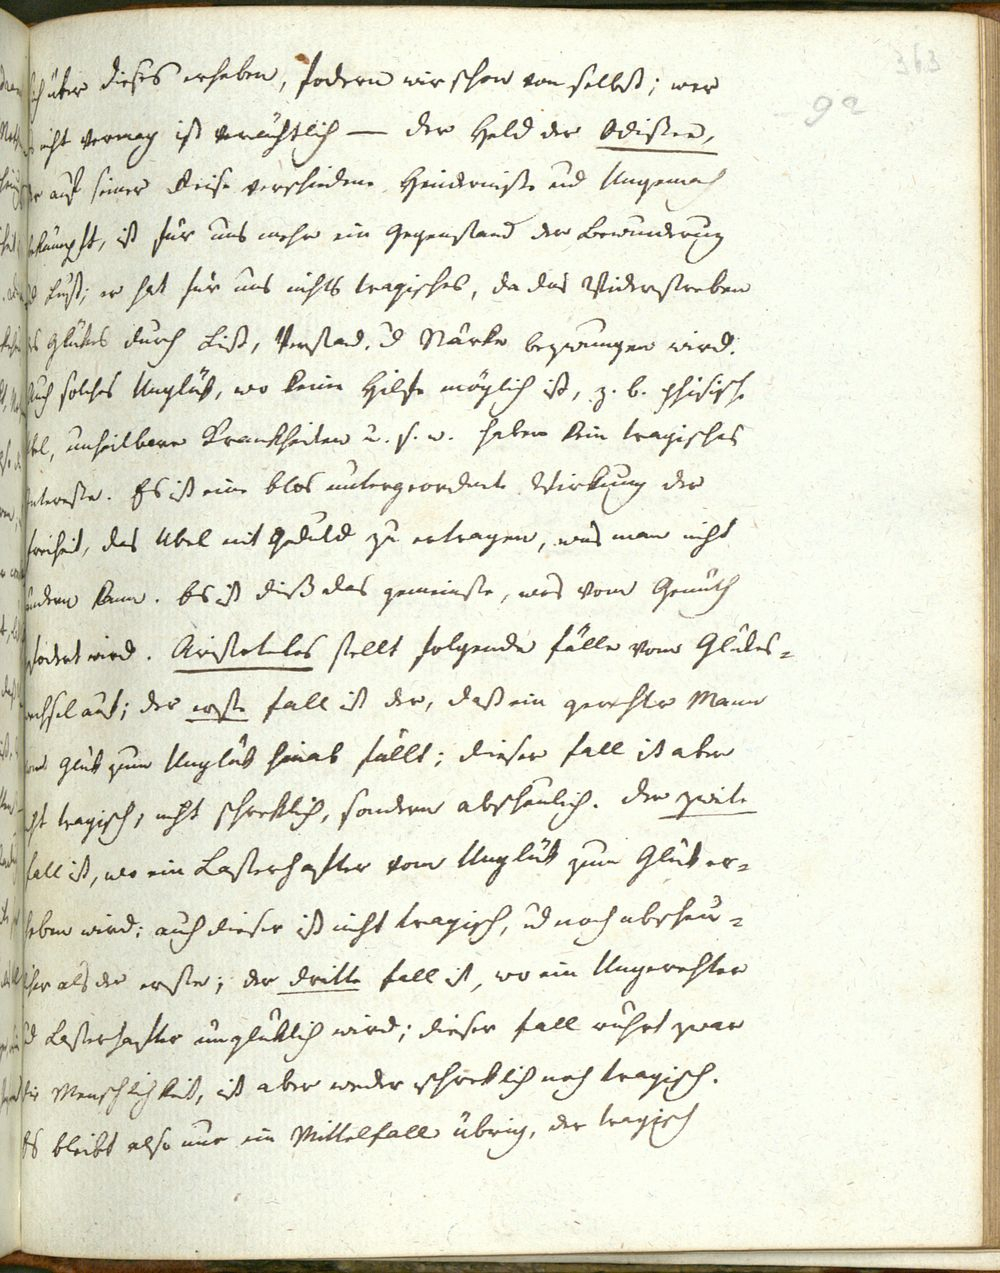 363
92
sich über dieses erheben, fodern wir schon von selbst; wer
es nicht vermag ist verächtlich — der Held der Odissee,
der auf seiner Reise verschiedene Hindernisse und Ungemach
bekämpft, ist für uns mehr ein Gegenstand der Bewunderung
und Lust; er hat für uns nichts tragisches, da das Widerstreben
des Glükes durch List, Verstand, ud Stärke bezwungen wird.
Auch solches Unglük, wo keine Hilfe möglich ist, z. b. phisische
Übel, unheilbare Krankheiten u. s. w. haben kein tragisches
Interesse. Es ist eine blos untergeordnete Wirkung der
Freiheit, das Übel mit Geduld zu ertragen, was man nicht
ändern kann. Es ist dieß das gemeinste, was vom Gemüth
gefodert wird. Aristoteles stellt folgende Fälle vom Glükes=
wechsel auf; der erste Fall ist der, daß ein gerechter Mann
vom Glük zum Unglük hinab fällt; dieser Fall ist aber
nicht tragisch, nicht schreklich, sondern abscheulich. Der zweite
Fall ist, wo ein Lasterhafter vom Unglük zum Glük er=
hoben wird; auch dieser ist nicht tragisch, ud noch abscheu=
licher als der erste; der dritte Fall ist, wo ein Ungerechter
ud Lasterhafter unglüklich wird; dieser Fall rührt zwar
die Menschlichkeit, ist aber weder schreklich noch tragisch.
Es bleibt also nur ein Mittelfall übrig, der tragisch